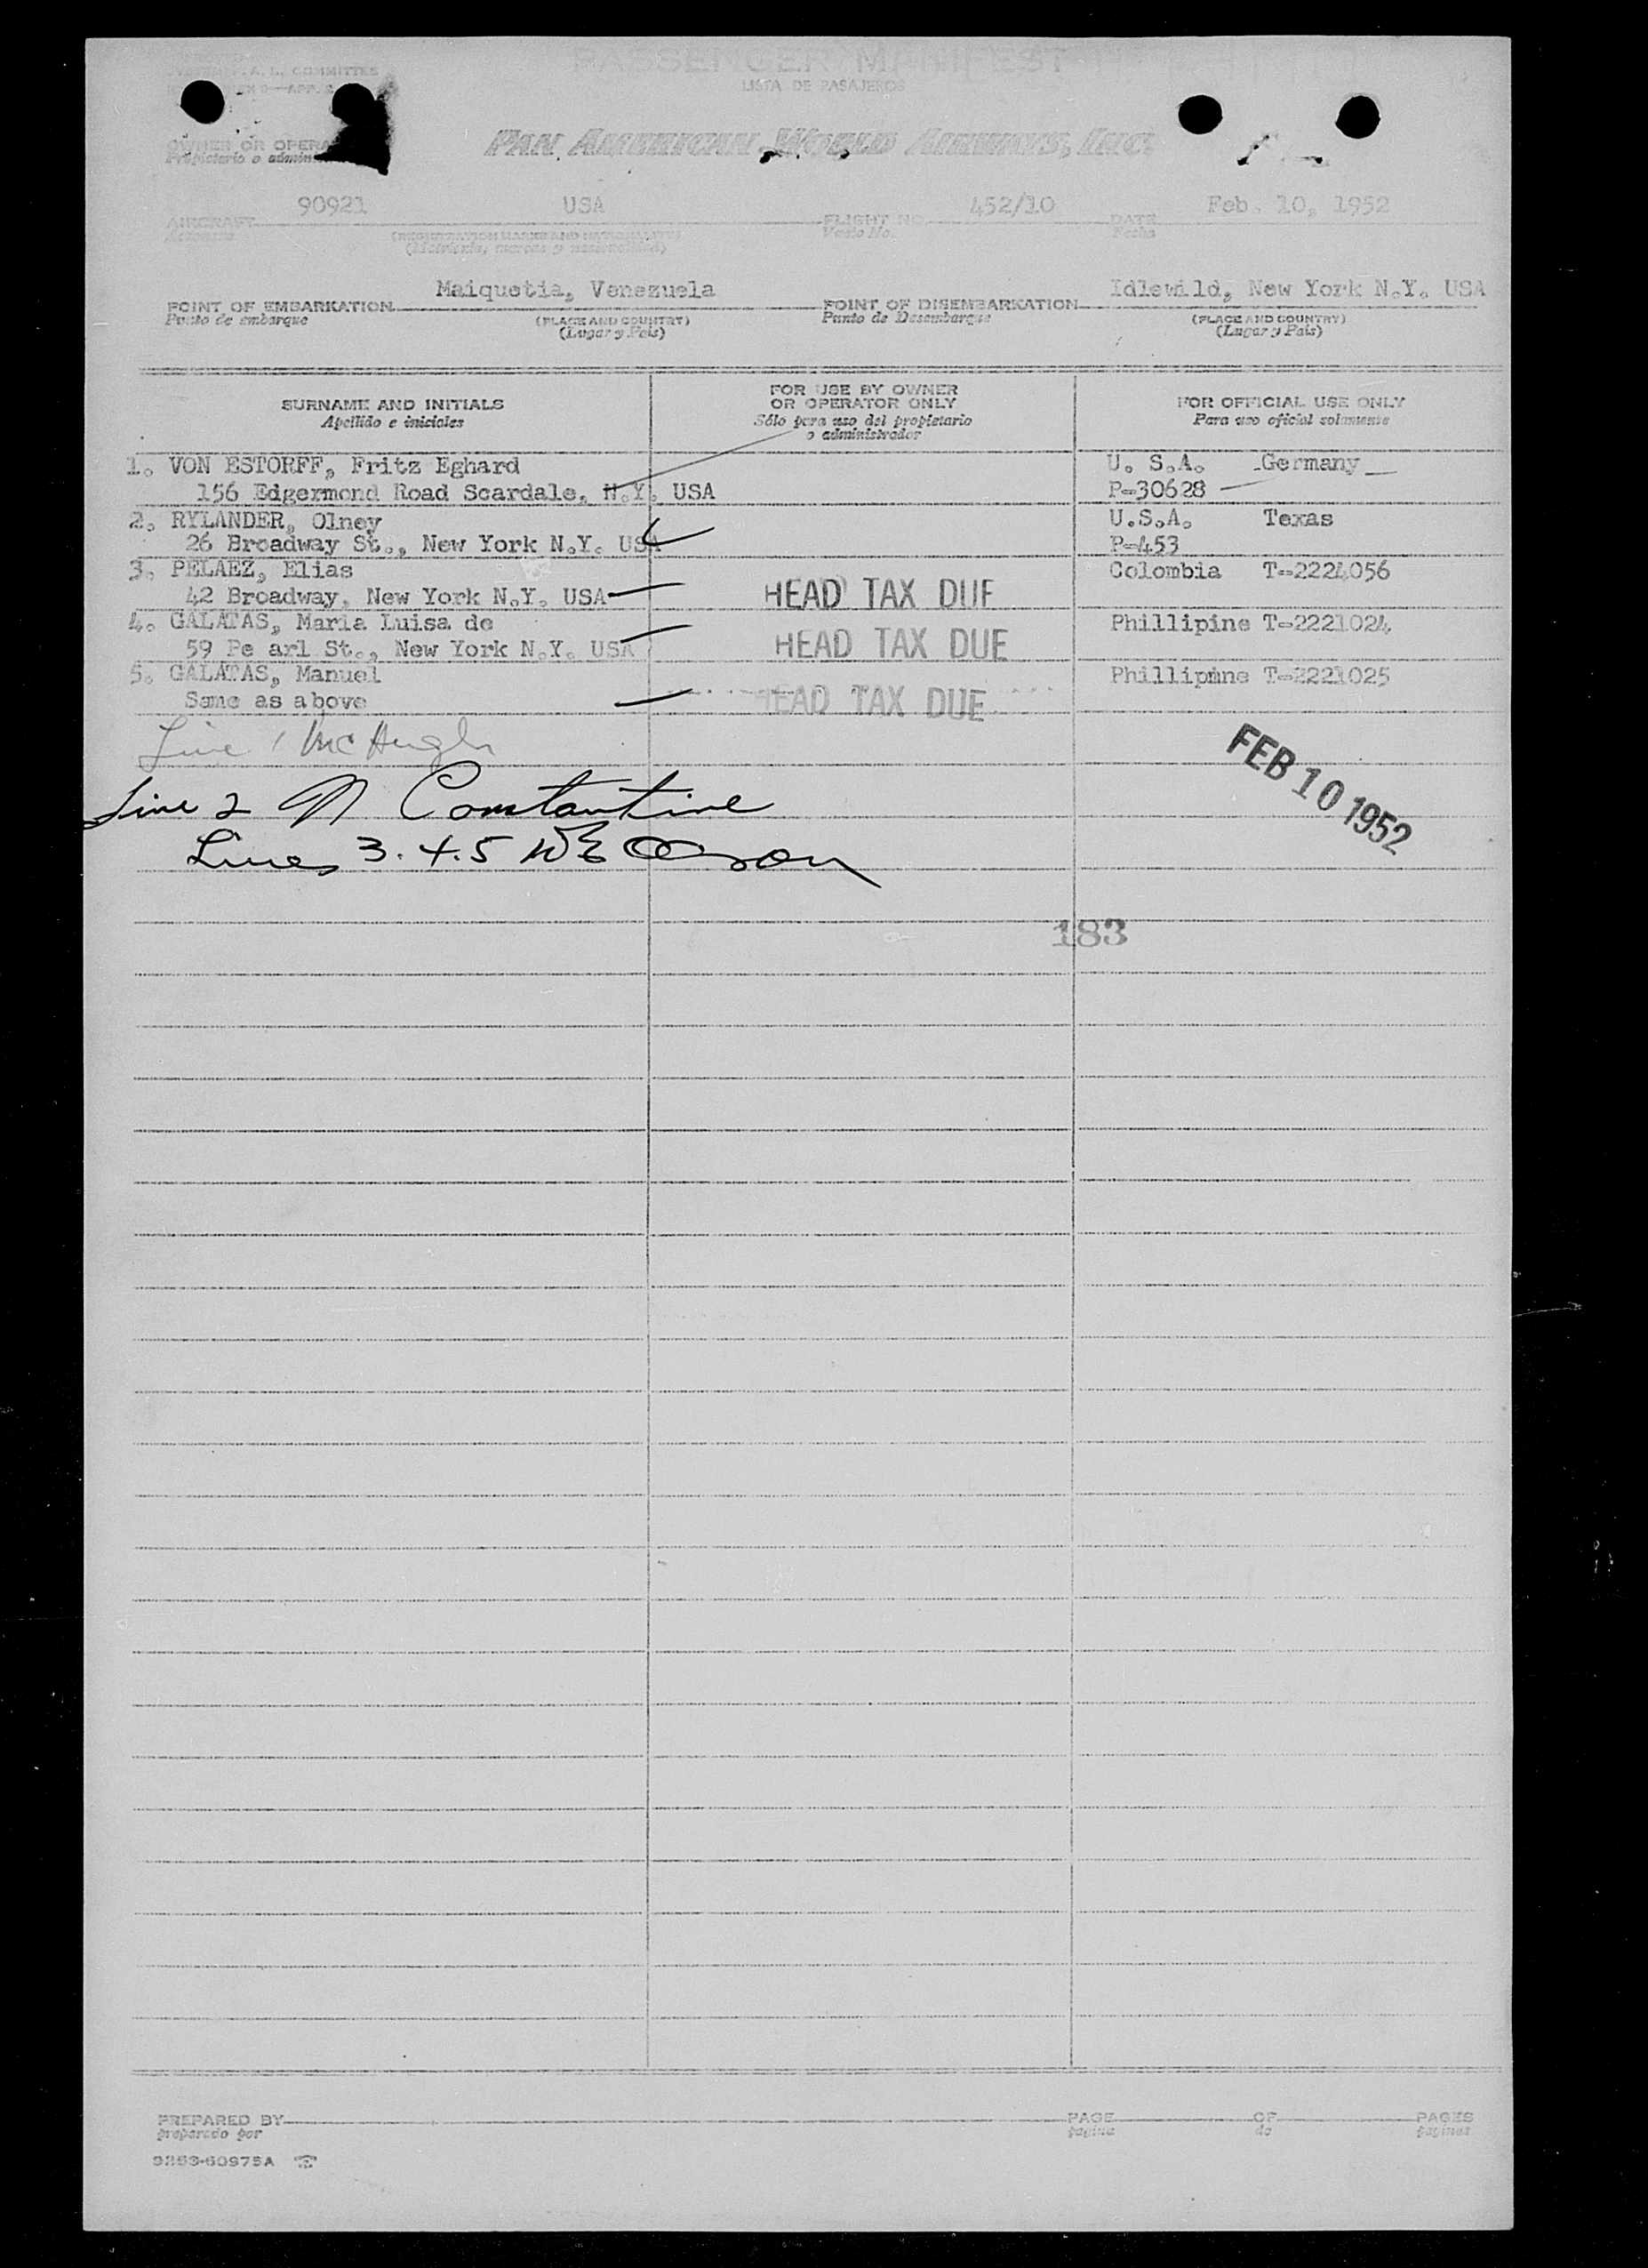 PASSENGER MANIFEST
LISTA DE PASAJEROS
A. I. COMMITTEE
OWNER OR OPERA
Propietario o admin
PAN AMERICAN WORLD AIRWAYS, INC.
90921 USA 452/10 Feb. 10, 1952
AIRCRAFT FLIGHT NO. DATE
Aeronave (REGISTRATION MARKS AND NATIONALITY) Vuelo No. Fecha
(Matrícula, marcas y nacionalidad)
Maiquetia, Venezuela Idlewild, New York N.Y. USA
POINT OF EMBARKATION POINT OF DISEMBARKATION
Punto de embarque (PLACE AND COUNTRY) Punto de Desembarque (PLACE AND COUNTRY)
(Lugar y País) (Lugar y País)
SURNAME AND INITIALS
Apellido e iniciales
FOR USE BY OWNER
OR OPERATOR ONLY
Sólo para uso del propietario
o administrador
FOR OFFICIAL USE ONLY
Para uso oficial solamente
1. VON ESTORFF, Fritz Eghard U. S.A. Germany
156 Edgermond Road Scardale, N.Y. USA P-30628
2. RYLANDER, Olney U.S.A. Texas
26 Broadway St., New York N.Y. USA P-453
3. PELAEZ, Elias Colombia T-2224056
42 Broadway, New York N.Y. USA HEAD TAX DUE
4. GALATAS, Maria Luisa de Phillipine T-2221024
59 Pe arl St., New York N.Y. USA HEAD TAX DUE
5. GALATAS, Manuel Phillipine T-2221025
Same as above HEAD TAX DUE
Line 1 McHugh
FEB 10 1952
Line 2 N Constantine
Lines 3.4.5 WE Olson
183
PREPARED BY PAGE OF PAGES
preparado por página de páginas
9253-60975A